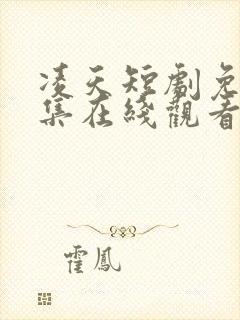 凌天短劇免
集在綫觀看
霍鳳